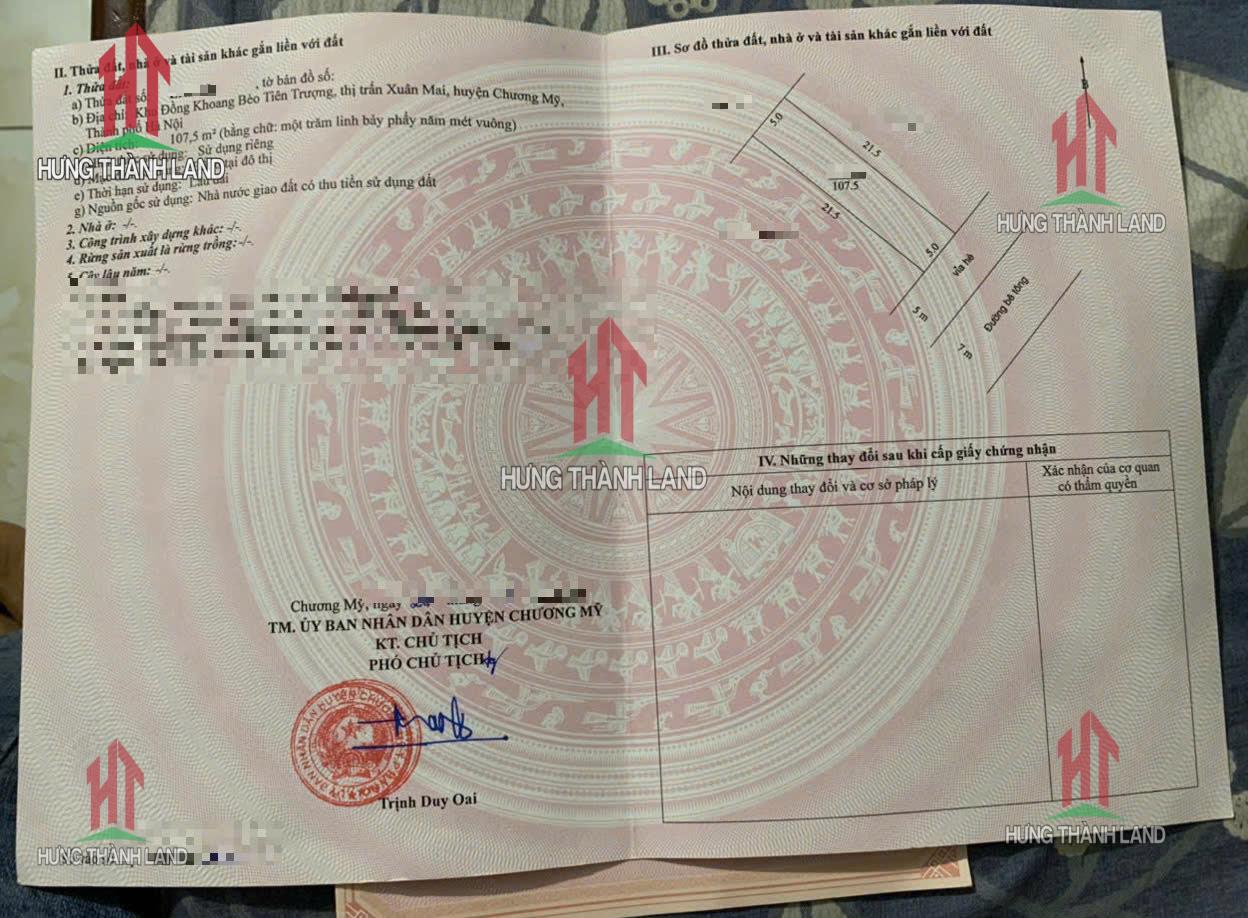 II. Thửa đất, nhà ở và tài sản khác gắn liền với đất
1. Thửa đất:
a) Thửa đất số: , tờ bản đồ số:
b) Địa chỉ: Khu Đồng Khoang Bèo Tiên Trượng, thị trấn Xuân Mai, huyện Chương Mỹ,
Thành phố Hà Nội
c) Diện tích: 107,5 m² (bằng chữ: một trăm linh bảy phẩy năm mét vuông)
sử dụng: Sử dụng riêng
tại đô thị
e) Thời hạn sử dụng: Lâu dài
g) Nguồn gốc sử dụng: Nhà nước giao đất có thu tiền sử dụng đất
2. Nhà ở: -/-.
3. Công trình xây dựng khác: -/-.
4. Rừng sản xuất là rừng trồng: -/-.
5. Cây lâu năm: -/-.
Chương Mỹ, ngày
TM. ỦY BAN NHÂN DÂN HUYỆN CHƯƠNG MỸ
KT. CHỦ TỊCH
PHÓ CHỦ TỊCH
Trịnh Duy Oai
III. Sơ đồ thửa đất, nhà ở và tài sản khác gắn liền với đất
B
5.0
21.5
107.5
21.5
5.0
vỉa hè
5 m
Đường bê tông
7 m
IV. Những thay đổi sau khi cấp giấy chứng nhận
Nội dung thay đổi và cơ sở pháp lý
Xác nhận của cơ quan
có thẩm quyền
HT
HƯNG THÀNH LAND
HT
HƯNG THÀNH LAND
HT
HƯNG THÀNH LAND
HT
HƯNG THÀNH LAND
HT
HƯNG THÀNH LAND